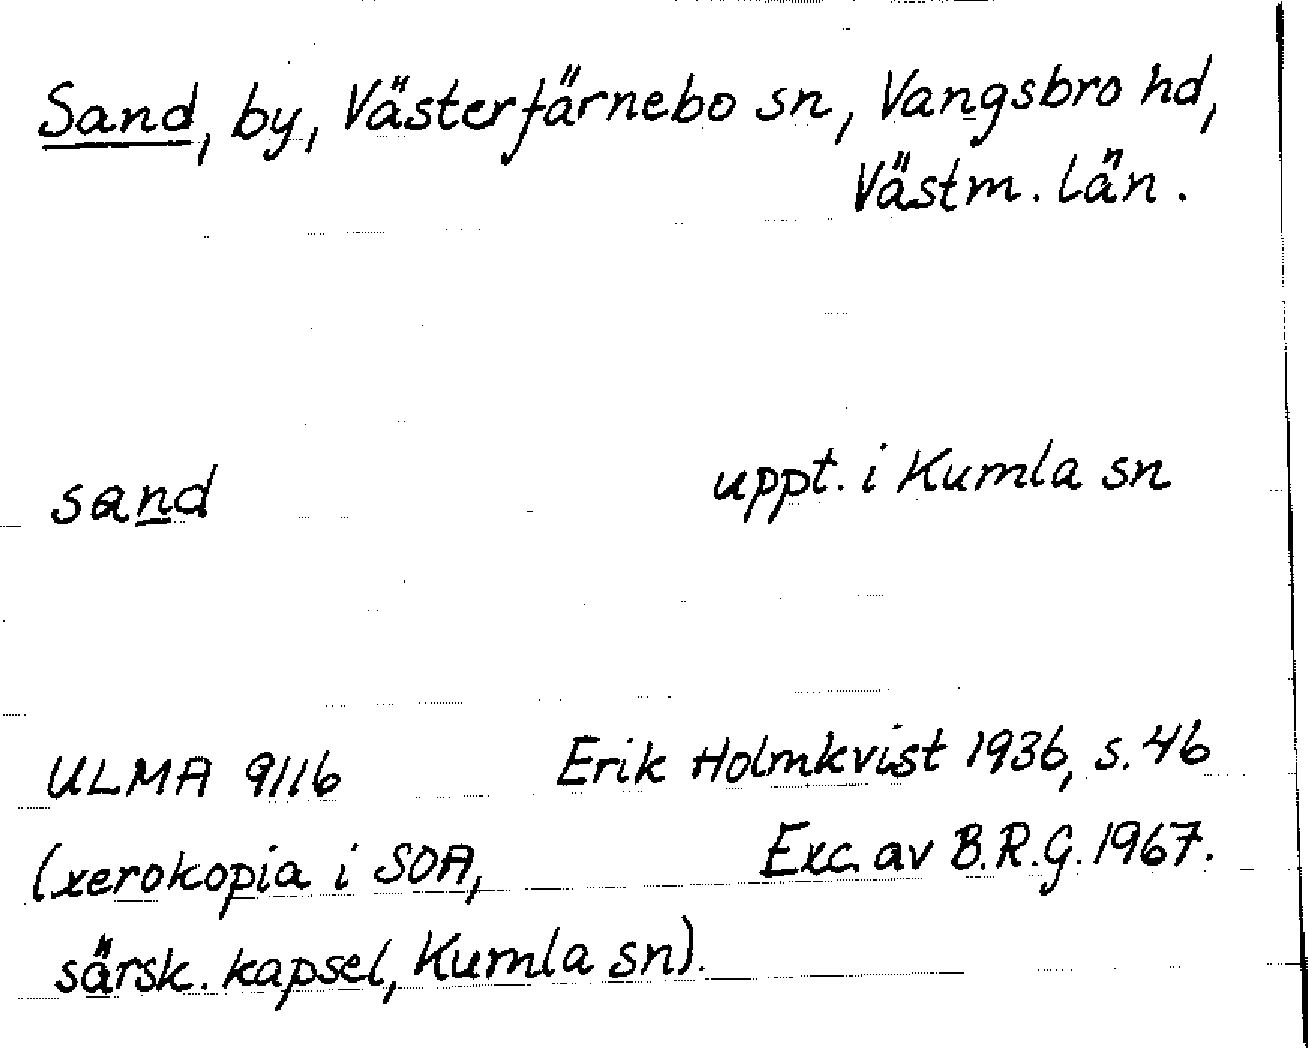 Sand, by, Västerfärnebo sn, Vangsbro hd,
Västm. län.
sand uppt. i Kumla sn
ULMA 9116 Erik Holmkvist 1936, s. 46
(xerokopia i SOA, Exc. av B.R.G. 1967.
särsk. kapsel, Kumla sn).